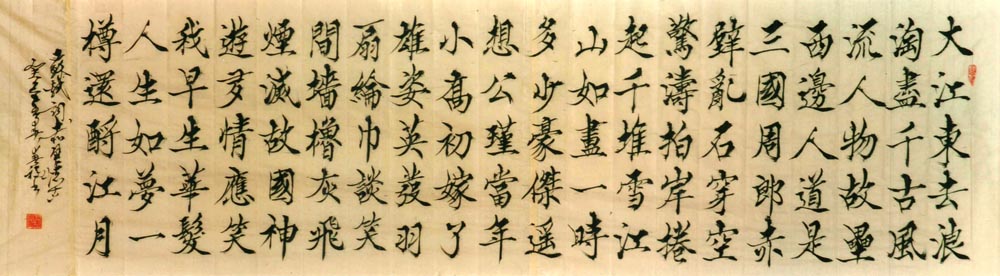 大江東去浪
淘盡千古風
流人物故壘
西邊人道是
三國周郎赤
壁亂石穿空
驚濤拍岸捲
起千堆雪江
山如畫一時
多少豪傑遥
想公瑾當年
小喬初嫁了
雄姿英發羽
扇綸巾談笑
間墻櫓灰飛
煙滅故國神
遊多情應笑
我早生華髮
人生如夢一
樽還酹江月
蘇軾詞